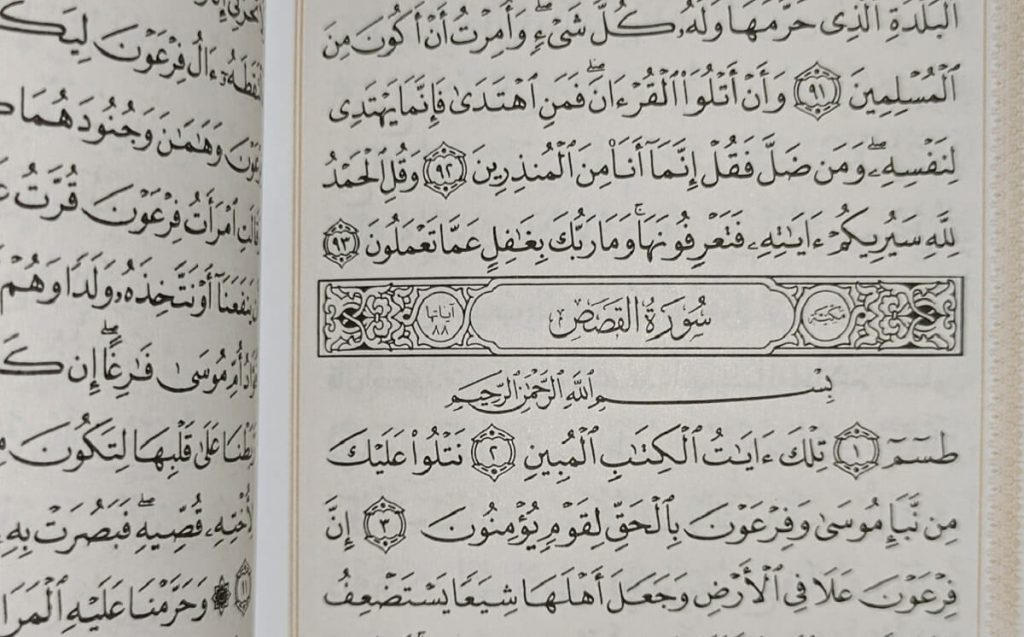 ٱلْبَلْدَةِ ٱلَّذِى حَرَّمَهَا وَلَهُۥ كُلُّ شَىْءٍۖ وَأُمِرْتُ أَنْ أَكُونَ مِنَ
ٱلْمُسْلِمِينَ ٩١ وَأَنْ أَتْلُوَا۟ ٱلْقُرْءَانَۖ فَمَنِ ٱهْتَدَىٰ فَإِنَّمَا يَهْتَدِى
لِنَفْسِهِۦۖ وَمَن ضَلَّ فَقُلْ إِنَّمَآ أَنَا۠ مِنَ ٱلْمُنذِرِينَ ٩٢ وَقُلِ ٱلْحَمْدُ
لِلَّهِ سَيُرِيكُمْ ءَايَٰتِهِۦ فَتَعْرِفُونَهَاۚ وَمَا رَبُّكَ بِغَٰفِلٍ عَمَّا تَعْمَلُونَ ٩٣
مكية سُورَةُ القَصَصِ آياتها ٨٨
بِسْمِ ٱللَّهِ ٱلرَّحْمَٰنِ ٱلرَّحِيمِ
طسٓمٓ ١ تِلْكَ ءَايَٰتُ ٱلْكِتَٰبِ ٱلْمُبِينِ ٢ نَتْلُوا۟ عَلَيْكَ
مِن نَّبَإِ مُوسَىٰ وَفِرْعَوْنَ بِٱلْحَقِّ لِقَوْمٍ يُؤْمِنُونَ ٣ إِنَّ
فِرْعَوْنَ عَلَا فِى ٱلْأَرْضِ وَجَعَلَ أَهْلَهَا شِيَعًا يَسْتَضْعِفُ
ءَالُ فِرْعَوْنَ
وَهَٰمَٰنَ وَجُنُودَهُمَا
ٱمْرَأَتُ فِرْعَوْنَ قُرَّتُ
أَوْ نَتَّخِذَهُۥ وَلَدًا وَهُمْ
أُمِّ مُوسَىٰ فَٰرِغًاۖ إِن
عَلَىٰ قَلْبِهَا لِتَكُونَ
لِأُخْتِهِۦ قُصِّيهِۖ فَبَصُرَتْ بِهِۦ
وَحَرَّمْنَا عَلَيْهِ